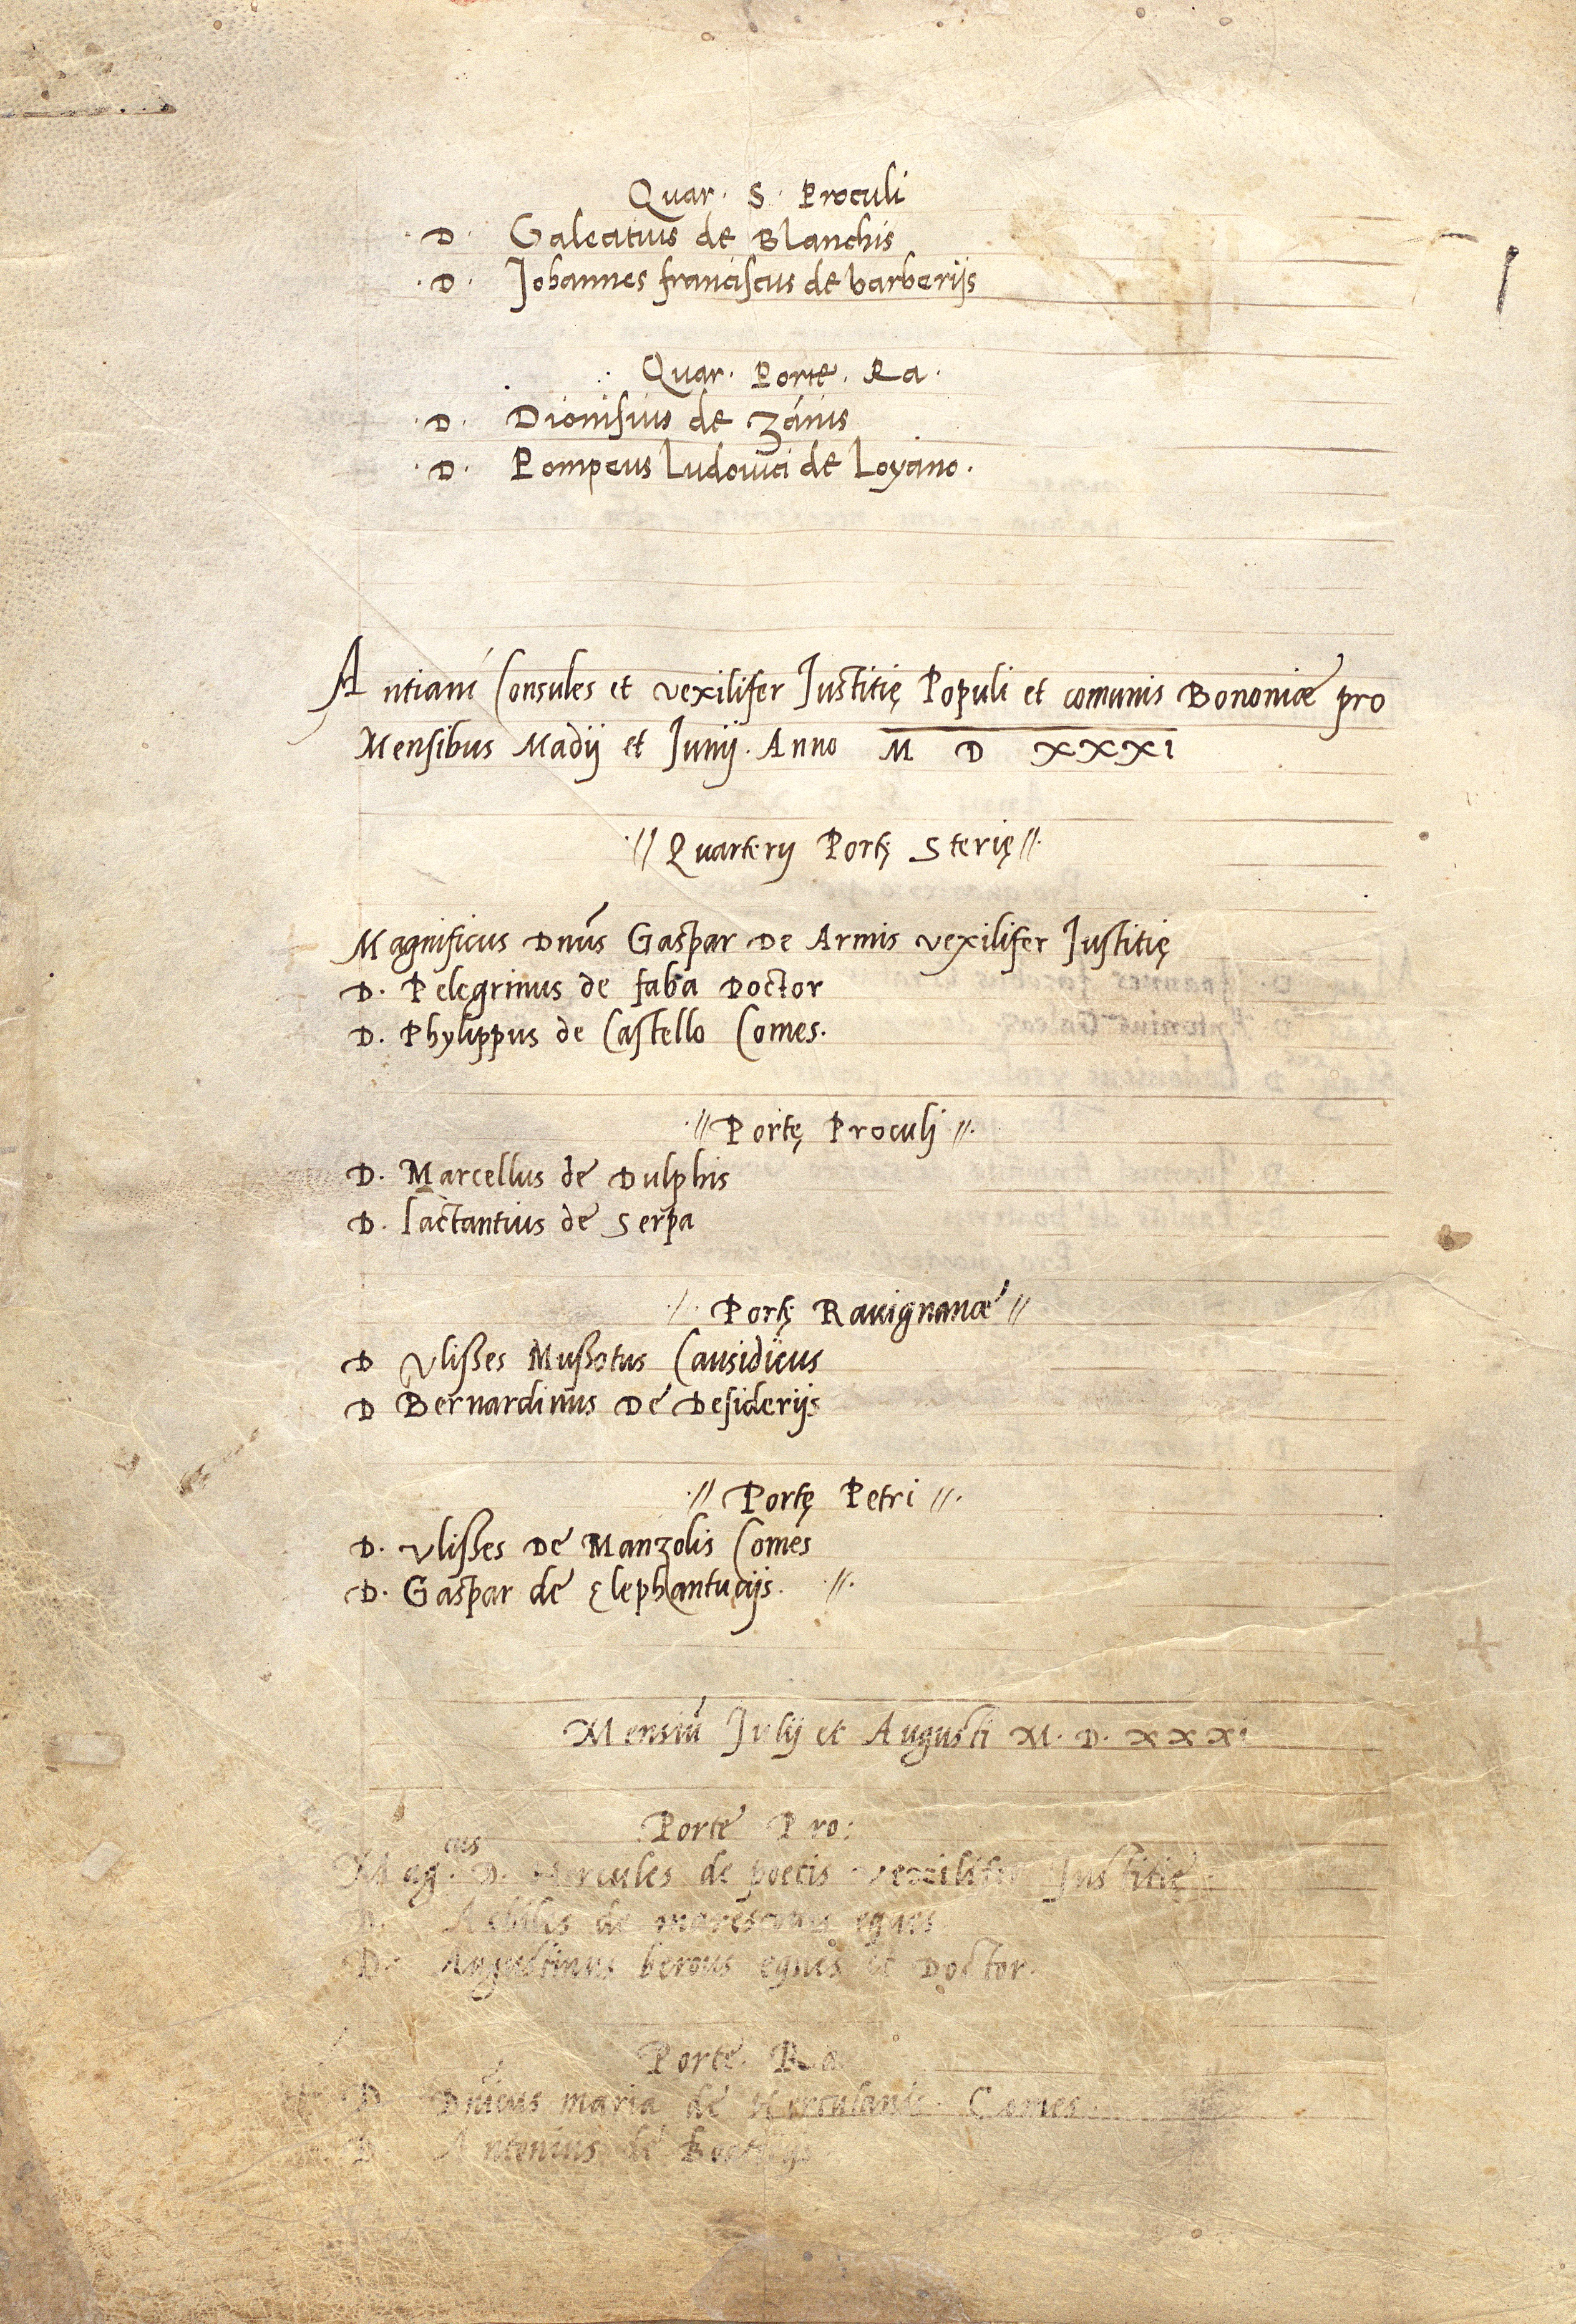 Quar. S. Proculi
.D. Galeatius de Blanchis
.D. Johannes franciscus de barberijs
Quar. Porte. Ra.
.D. Dionisius de Zanis
.D. Pompeus Ludovici de Loyano.
Antiani Consules et vexilifer Justitię Populi et comunis Bononiæ pro
Mensibus Madij et Junij. Anno M D XXXI
.// Quarterij Portę Sterię //.
Magnificus Dnus Gaspar De Armis vexilifer Justitię
D. Pelegrinus de faba Doctor
D. Phylippus de Castello Comes.
.// Portę Proculj //.
D. Marcellus de Dulphis
D. lactantius de Serpa
// Portę Ravignanæ //
D Vlisses Mussotus Causidicus
D Bernardinus De Desiderijs
.// Portę Petri //.
D. Vlisses De Manzolis Comes
D. Gaspar de Elephantucijs. .//.
Mensiū Julij et Augusti M. D. XXXI
Porte Pro:
Mag.cus D. Hercules de poetis vexilifer Justitię
D. de eques
D. Augustinus berous eques et Doctor.
Porte. Ra
D Dnicus maria de Herculanis Comes.
D Antonius de